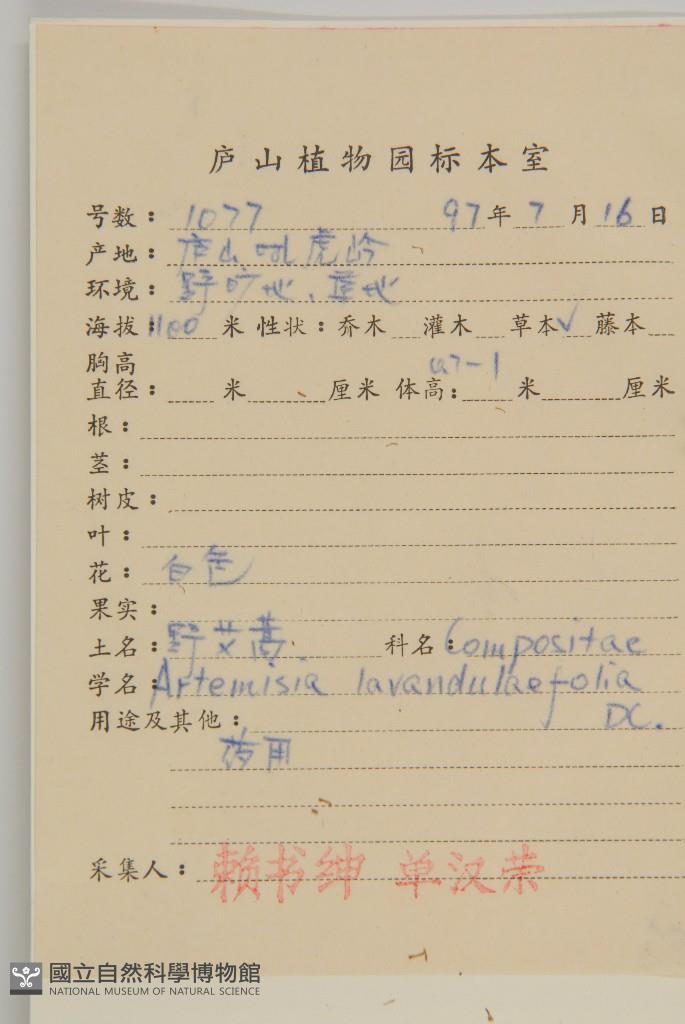 庐山植物园标本室
号数：1077 97年7月16日
产地：庐山吼虎岭
环境：野旷地、荒地
海拔：1100米 性状：乔木 灌木 草本√ 藤本
胸高
直径： 米 厘米 体高：0.7-1 米 厘米
根：
茎：
树皮：
叶：
花：白色
果实：
土名：野艾蒿. 科名：Compositae
学名：Artemisia lavandulaefolia
用途及其他： DC.
药用
采集人：赖书绅 单汉荣
國立自然科學博物館
NATIONAL MUSEUM OF NATURAL SCIENCE